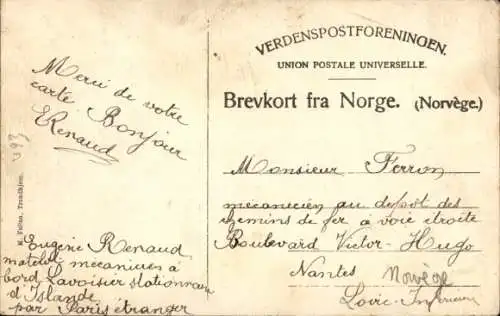 Merci de votre
carte Bonjour
ERenaud
393
M. Telles, Trondhjem.
Eugène Renaud
matelot mécanicien à
bord Lavoisier stationnaire
d'Islande
par Paris étranger
VERDENSPOSTFORENINGEN.
UNION POSTALE UNIVERSELLE.
Brevkort fra Norge. (Norvège.)
Monsieur Ferron
mécanicien au depot des
chemins de fer à voie étroite
Boulevard Victor-Hugo
Nantes
Norvège
Loire-Inférieure